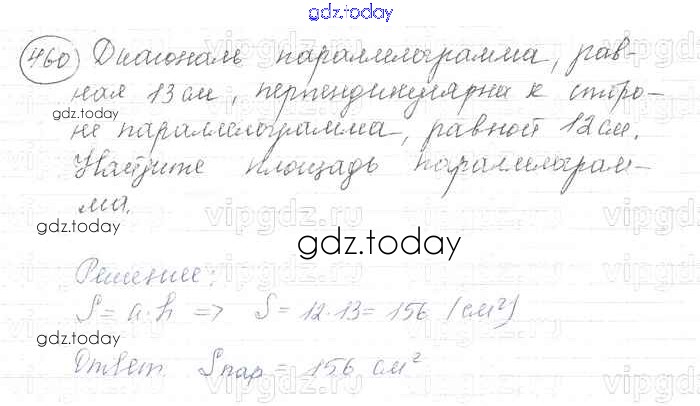 gdz.today
460 Диагональ параллелограмма, рав-
ная 13 см, перпендикулярна к сторо-
gdz.today
не параллелограмма, равной 12 см.
Найдите площадь параллелограм-
ма.
gdz.today
gdz.today
Решение:
S = a·h => S = 12·13 = 156 (см²)
gdz.today
Ответ Sпар = 156 см²
vipgdz.ru